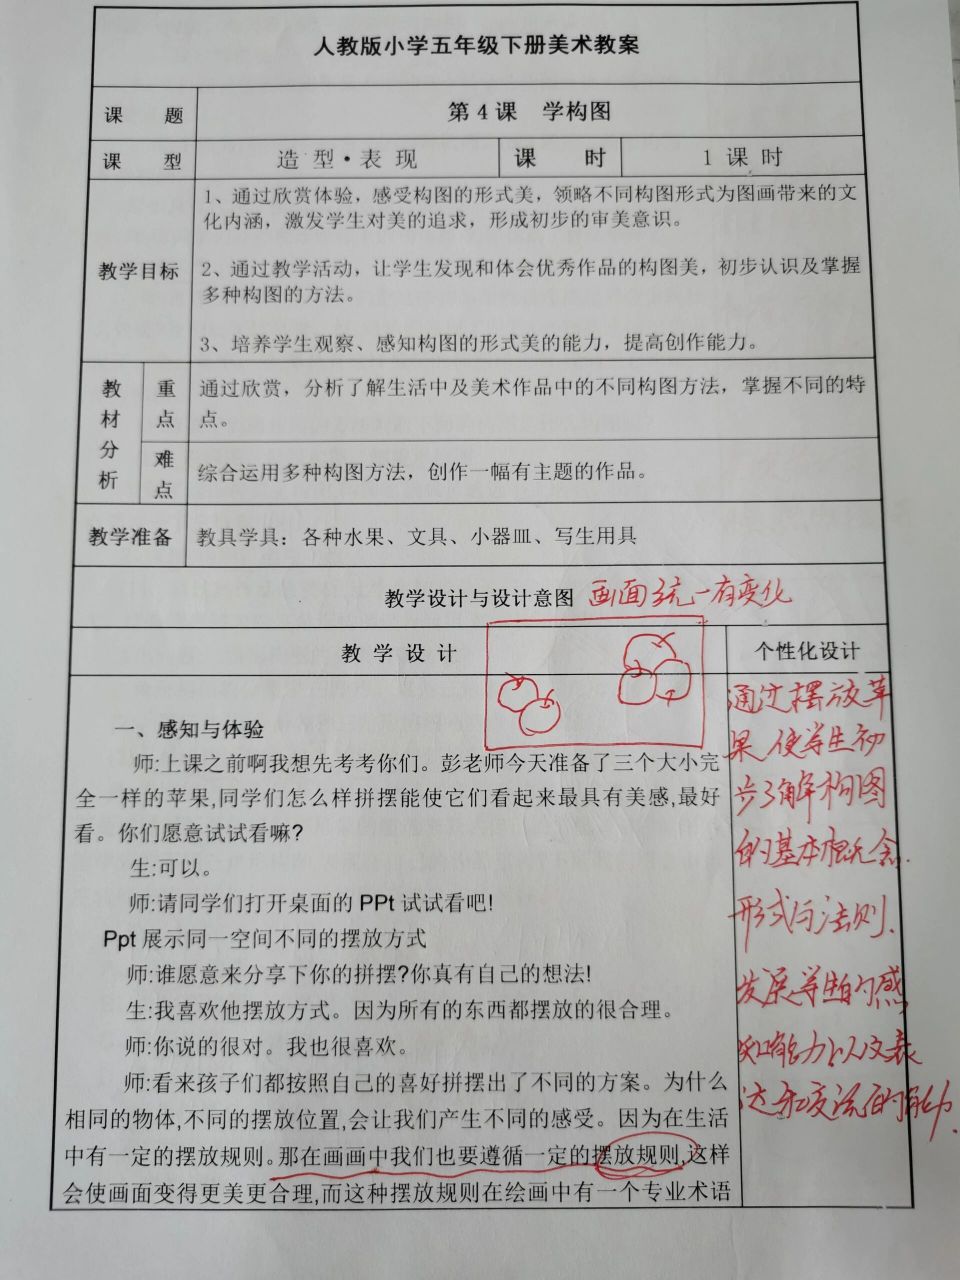 人教版小学五年级下册美术教案
课 题 第 4 课 学构图
课 型 造 型·表 现 课 时 1 课 时
教学目标
1、通过欣赏体验，感受构图的形式美，领略不同构图形式为图画带来的文
化内涵，激发学生对美的追求，形成初步的审美意识。
2、通过教学活动，让学生发现和体会优秀作品的构图美，初步认识及掌握
多种构图的方法。
3、培养学生观察、感知构图的形式美的能力，提高创作能力。
教材分析
重点
通过欣赏，分析了解生活中及美术作品中的不同构图方法，掌握不同的特
点。
难点
综合运用多种构图方法，创作一幅有主题的作品。
教学准备 教具学具：各种水果、文具、小器皿、写生用具
教学设计与设计意图 画面统一有变化
教 学 设 计 个性化设计
一、感知与体验
师:上课之前啊我想先考考你们。彭老师今天准备了三个大小完
全一样的苹果,同学们怎么样拼摆能使它们看起来最具有美感,最好
看。你们愿意试试看嘛?
生:可以。
师:请同学们打开桌面的 PPt 试试看吧!
Ppt 展示同一空间不同的摆放方式
师:谁愿意来分享下你的拼摆?你真有自己的想法!
生:我喜欢他摆放方式。因为所有的东西都摆放的很合理。
师:你说的很对。我也很喜欢。
师:看来孩子们都按照自己的喜好拼摆出了不同的方案。为什么
相同的物体,不同的摆放位置,会让我们产生不同的感受。因为在生活
中有一定的摆放规则。那在画画中我们也要遵循一定的摆放规则,这样
会使画面变得更美更合理,而这种摆放规则在绘画中有一个专业术语
通过摆放苹
果,使学生初
步了解构图
的基本概念.
形式与法则.
发展学生的感
知能力以及表
达和交流的能力.